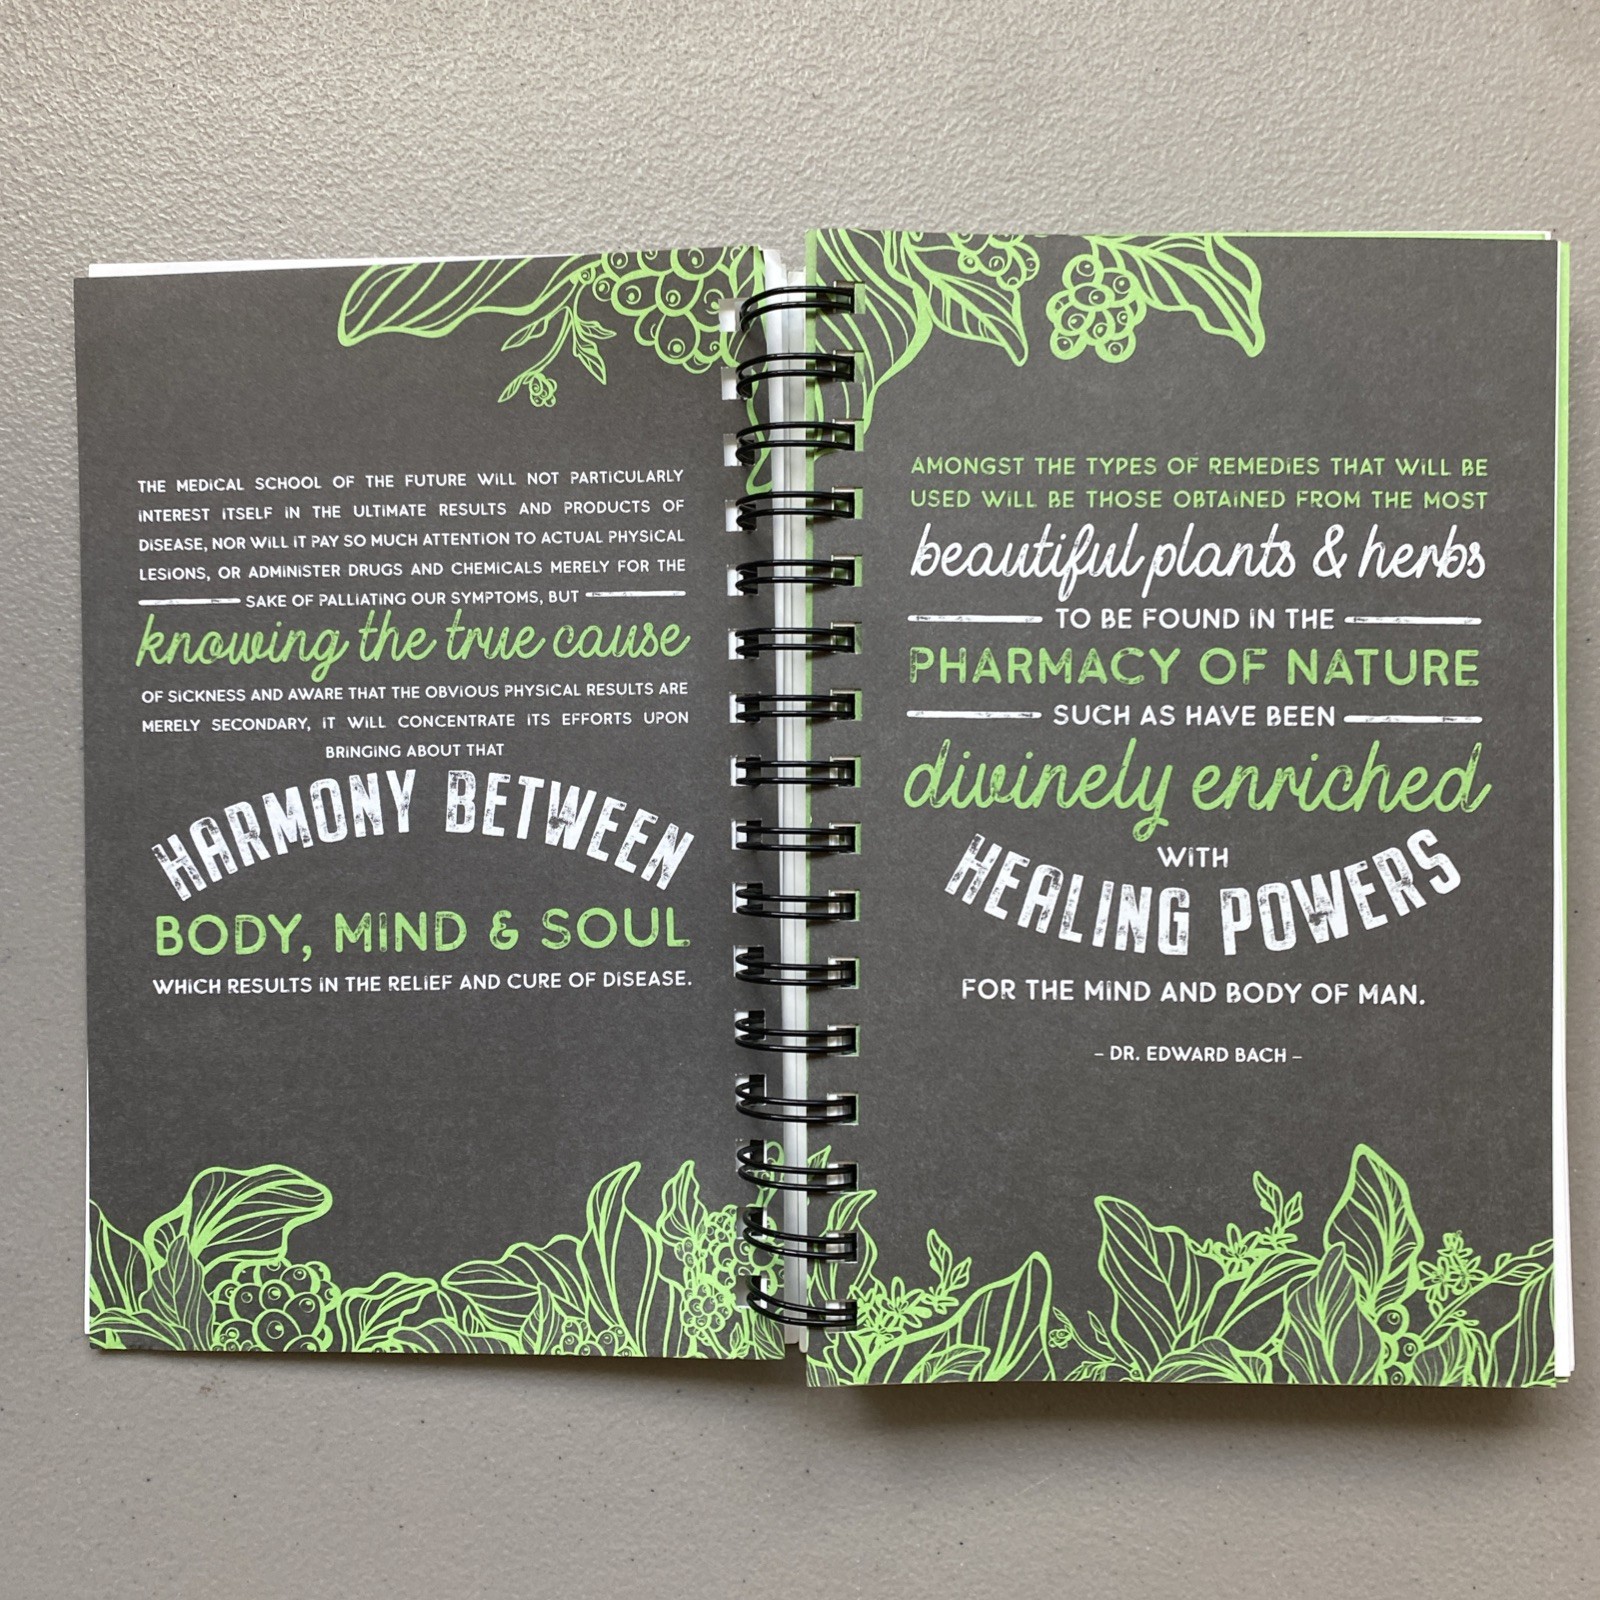 THE MEDICAL SCHOOL OF THE FUTURE WILL NOT PARTICULARLY
INTEREST ITSELF IN THE ULTIMATE RESULTS AND PRODUCTS OF
DISEASE, NOR WILL IT PAY SO MUCH ATTENTION TO ACTUAL PHYSICAL
LESIONS, OR ADMINISTER DRUGS AND CHEMICALS MERELY FOR THE
SAKE OF PALLIATING OUR SYMPTOMS, BUT
knowing the true cause
OF SICKNESS AND AWARE THAT THE OBVIOUS PHYSICAL RESULTS ARE
MERELY SECONDARY, IT WILL CONCENTRATE ITS EFFORTS UPON
BRINGING ABOUT THAT
HARMONY BETWEEN
BODY, MIND & SOUL
WHICH RESULTS IN THE RELIEF AND CURE OF DISEASE.
AMONGST THE TYPES OF REMEDIES THAT WILL BE
USED WILL BE THOSE OBTAINED FROM THE MOST
beautiful plants & herbs
TO BE FOUND IN THE
PHARMACY OF NATURE
SUCH AS HAVE BEEN
divinely enriched
WITH
HEALING POWERS
FOR THE MIND AND BODY OF MAN.
– DR. EDWARD BACH –